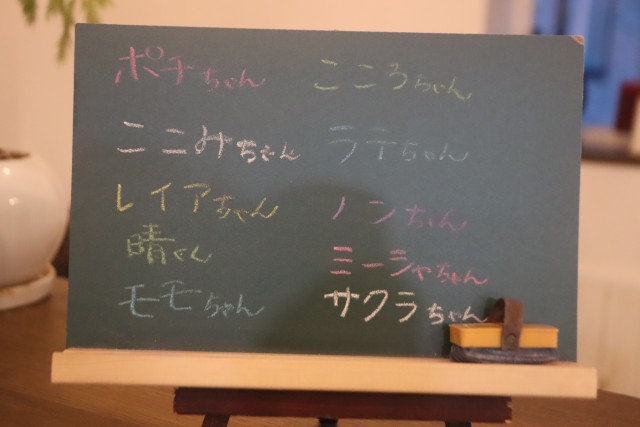 ポチちゃん
ここみちゃん
レイアちゃん
晴くん
モモちゃん
こころちゃん
ラテちゃん
ノンちゃん
ミーシャちゃん
サクラちゃん